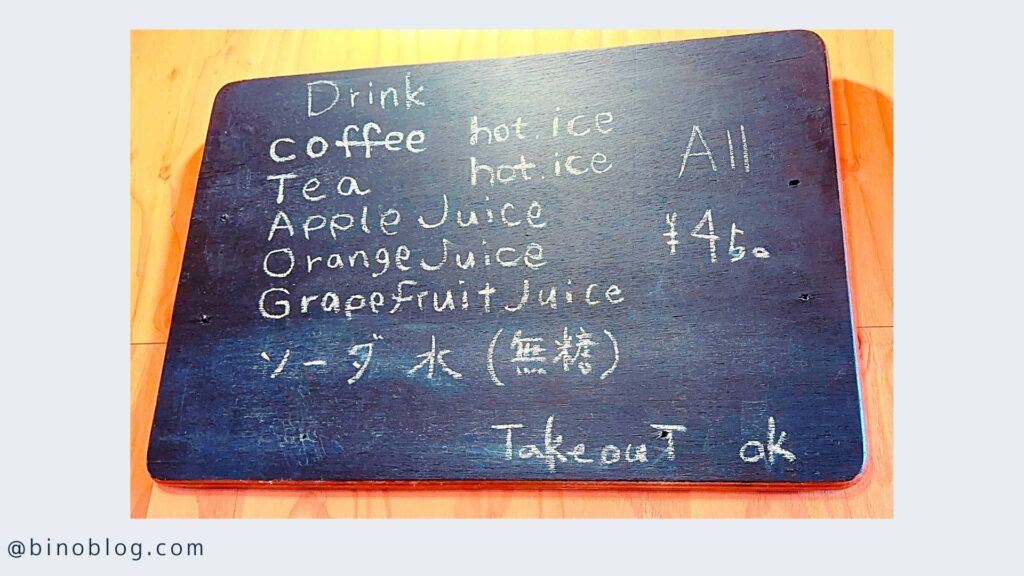 Drink
coffee hot.ice
Tea hot.ice
All
Apple Juice
¥450
Orange Juice
Grapefruit Juice
ソーダ水(無糖)
TakeouT ok
@binoblog.com